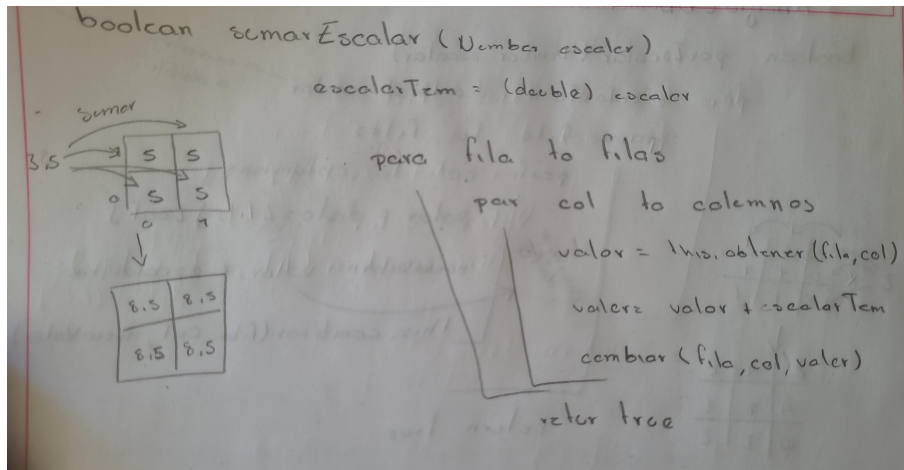 boolean sumarEscalar (Number escalar)
escalarTem = (double) escalar
sumar
3.5
5 5
0 5 5
0 1
8.5 8.5
8.5 8.5
para fila to filas
par col to columnas
valor = this.obtener (fila, col)
valor = valor + escalarTem
cambiar (fila, col, valor)
retur true